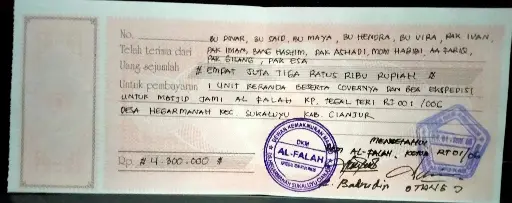 No. BU DINAR, BU SAID, BU MAYA, BU HENDRA, BU VIRA, PAK IVAN,
Telah terima dari PAK IMAN, BANG HASHIM, PAK ASHADI, MOM HABIBI, AA FARIQ,
PAK GILANG, PAK ESA
Uang sejumlah # EMPAT JUTA TIGA RATUS RIBU RUPIAH #
Untuk pembayaran 1 UNIT BERANDA BESERTA COVERNYA DAN BEA EKSPEDISI
UNTUK MASJID JAMI AL FALAH KP. TEGAL TERI RT 001 /006
DESA HEGARMANAH KEC. SUKALUYU KAB. CIANJUR
MENGETAHUI
DEWAN KEMAKMURAN
DKM
AL-FALAH
AL-FALAH, KETUA RT 01/06
Rp. # 4.300.000 #
Bahrudin